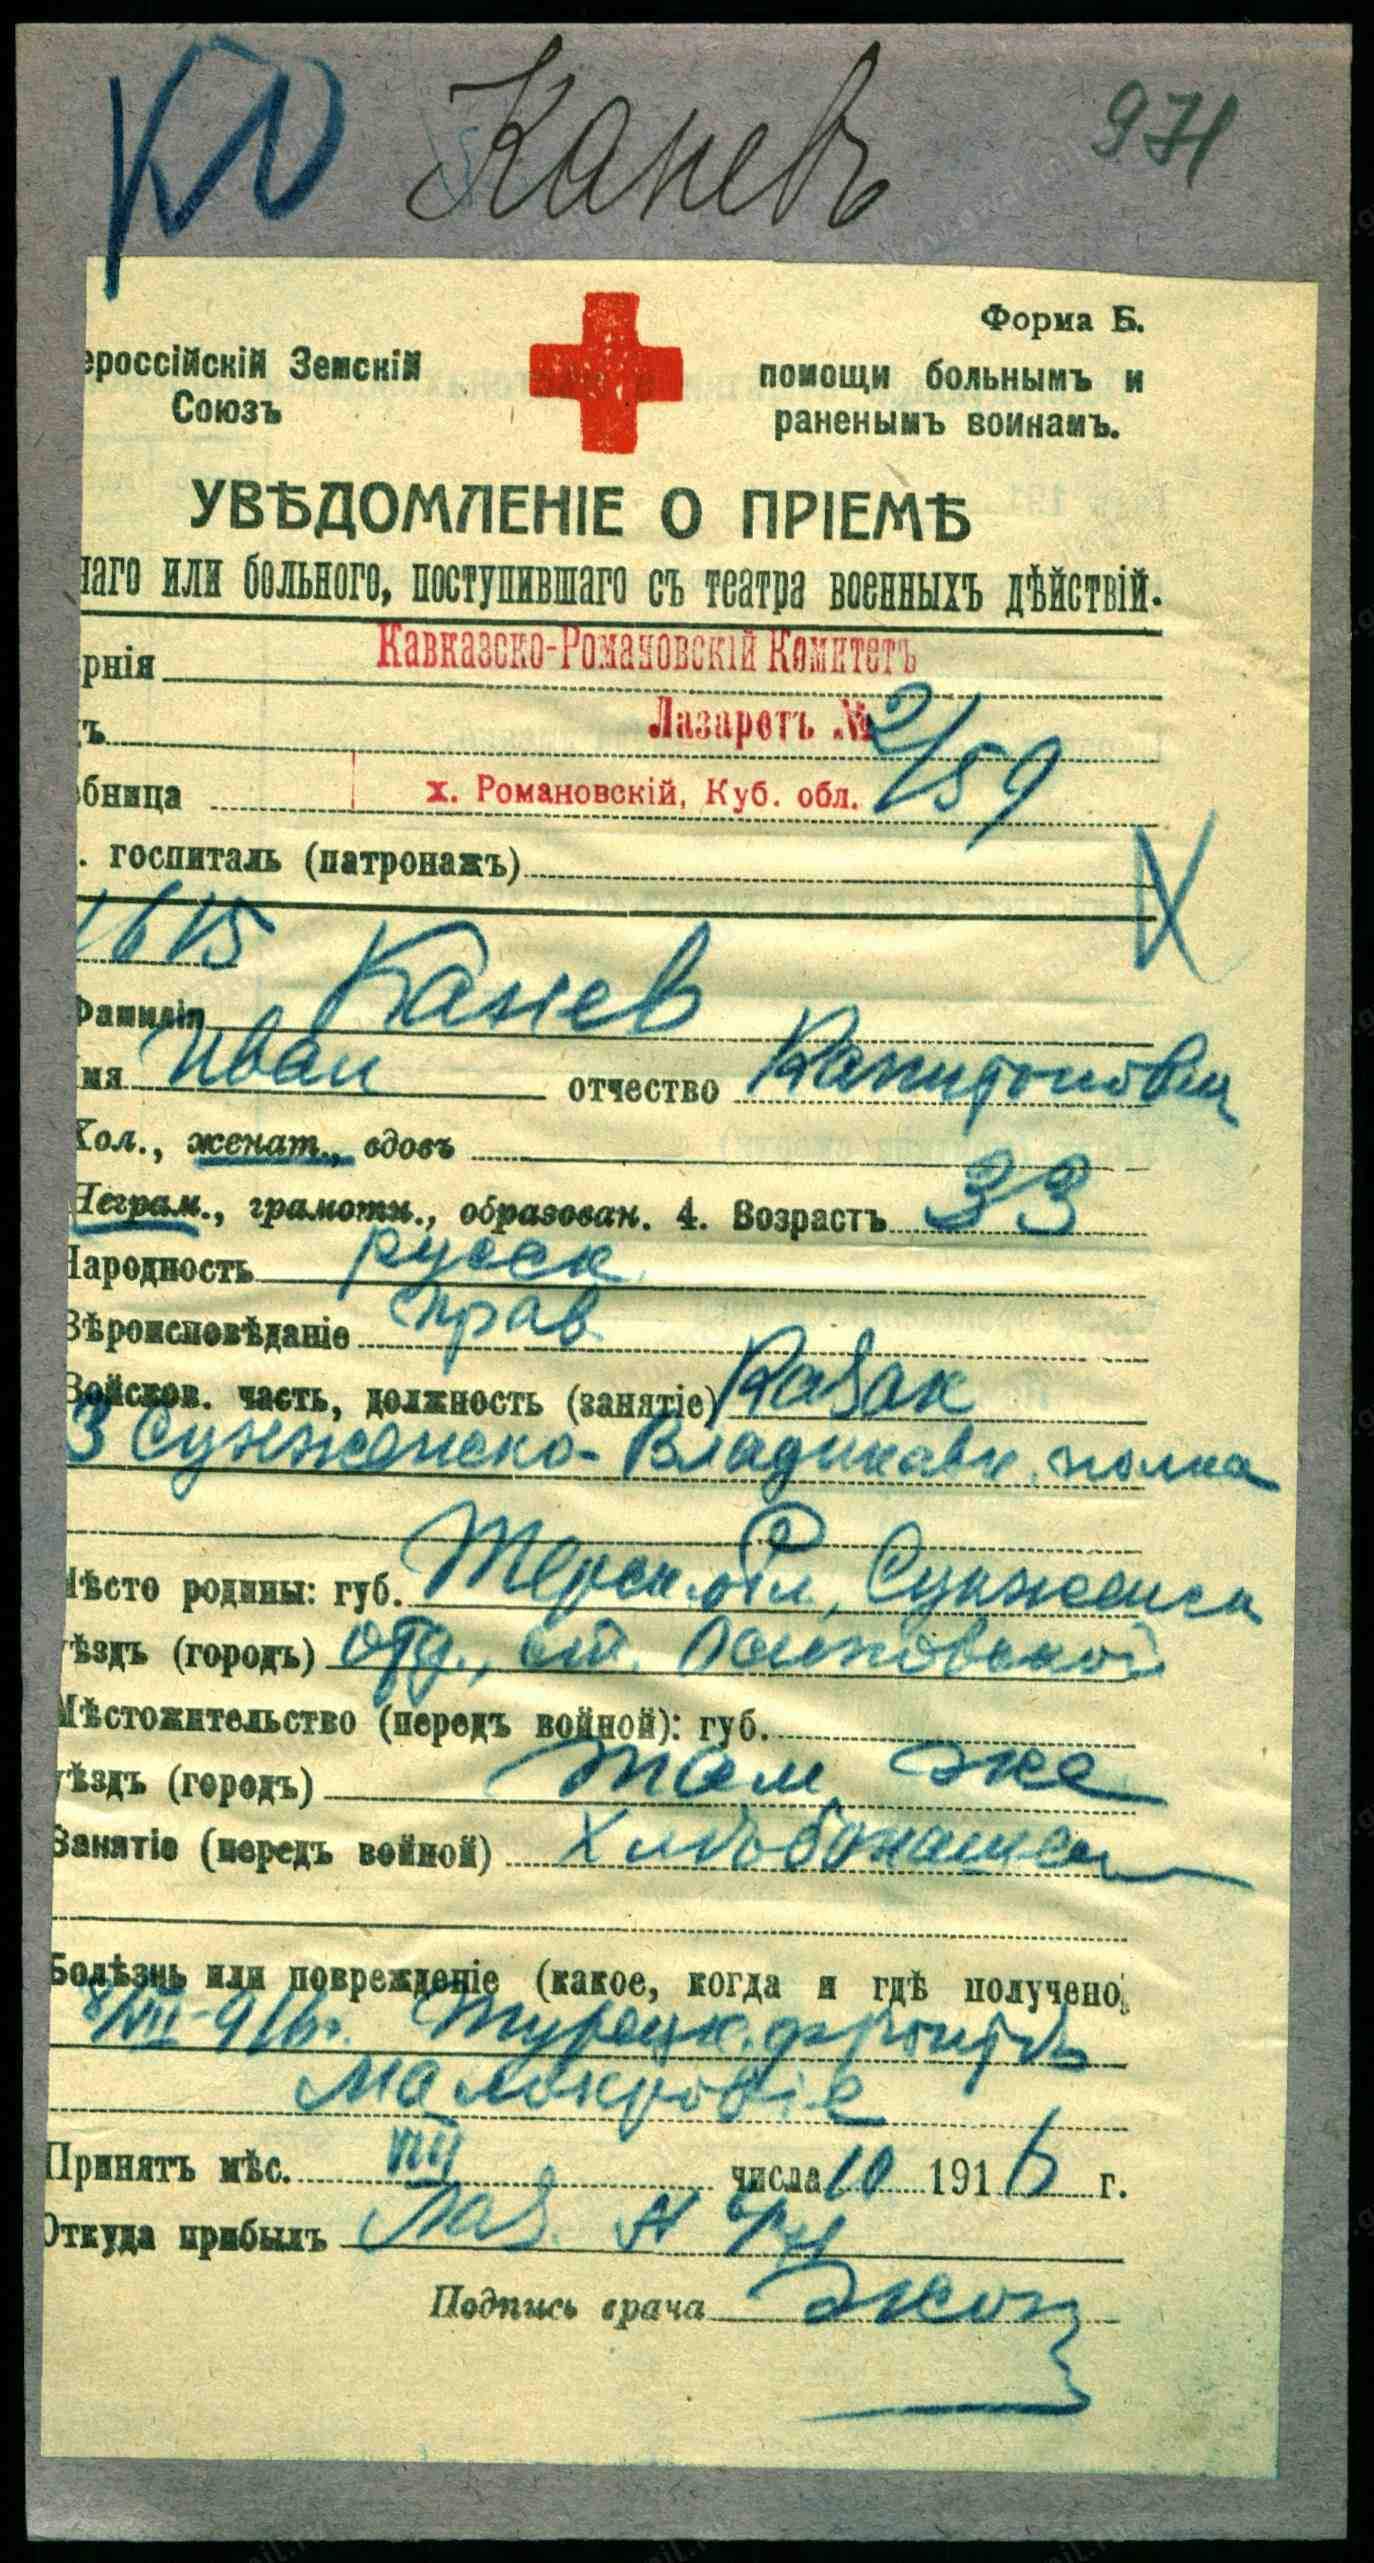 Каневъ
971
Форма Б.
ероссійскій Земскій
Союзъ
помощи больнымъ и
раненымъ воинамъ.
УВѢДОМЛЕНІЕ О ПРІЕМѢ
наго или больного, поступившаго съ театра военныхъ дѣйствій.
рнія Кавказско-Романовскій Комитетъ
ъ Лазаретъ № 2/59
бница х. Романовскій, Куб. обл.
. госпиталь (патронажъ)
1615
Фамилія Канев
мя Иван отчество Капитонович
Хол., женат., вдовъ
Неграм., грамотн., образован. 4. Возрастъ 33
Народность русск
Вѣроисповѣданіе прав.
Войсков. часть, должность (занятіе) Казак
3 Сунженско-Владикавк. полка
Мѣсто родины: губ. Терск. обл., Сунженск
уѣздъ (городъ) отд., ст.
Мѣстожительство (передъ войной): губ.
уѣздъ (городъ) там же
Занятіе (передъ войной) Хлѣбопашец
Болѣзнь или поврежденіе (какое, когда и гдѣ получено)
8/VIII-916г. Турецк. фронтѣ
Малокровіе
Принятъ мѣс. VIII числа 10 1916 г.
Откуда прибылъ Лаз. №
Подпись врача